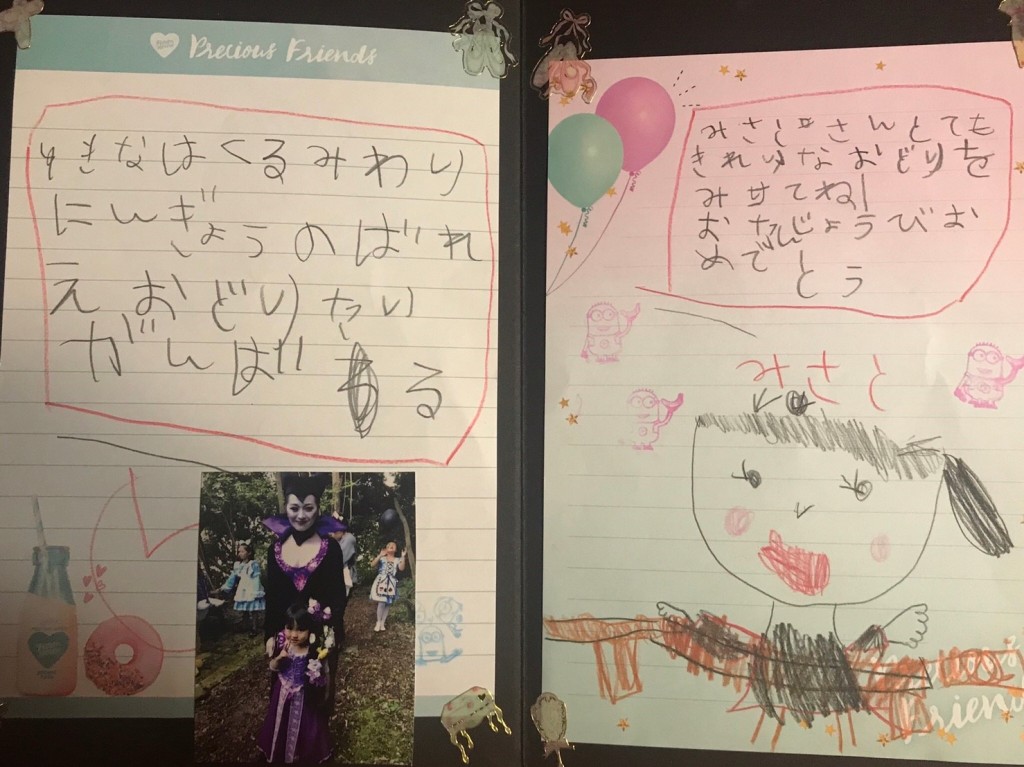 Precious Friends
ゆきなはくるみわり
にんぎょうのばれ
えおどりたい
がんばる
みさとさんとても
きれいなおどりを
みせてね!
おたんじょうびお
めでとう
みさと